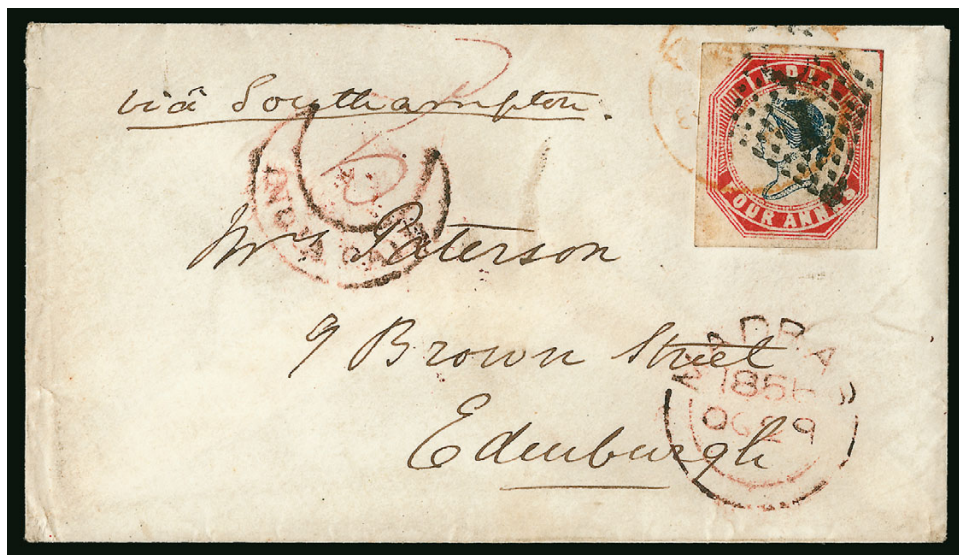 viâ Southampton.
INDIA
FOUR ANNAS
Mrs Paterson
9 Brown Street
Edenburgh
MADRAS
1856
OC 29